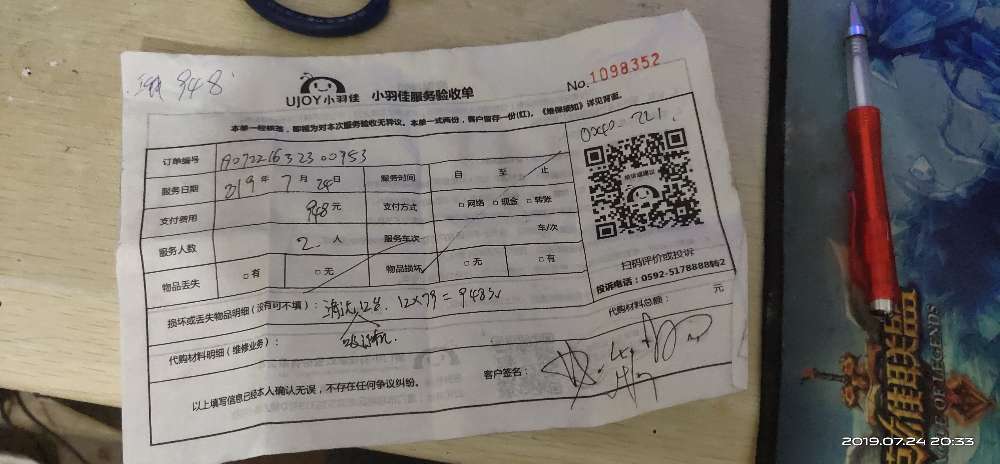 948
UJOY小羽佳 小羽佳服务验收单
No.1098352
本单一经核签,即视为对本次服务验收无异议。本单一式两份,客户留存一份(红)。《维保须知》详见背面。
0x40-221.
订单编号 A07221632300953
服务日期 2019年7月24日 服务时间 自 至 止
支付费用 948元 支付方式 □网络 □现金 □转账
服务人数 2人 服务车次 车/次
物品丢失 □有 □无 物品损坏 □无 □有
扫码评价或投诉
投诉电话:0592-5178888转2
损坏或丢失物品明细(没有可不填): 清洗 12台. 12×79=948元
代购材料总额: 元
代购材料明细(维修业务):
客户签名:
以上填写信息已经本人确认无误,不存在任何争议纠纷。
英雄联盟
LEAGUE OF LEGENDS
2019.07.24 20:33